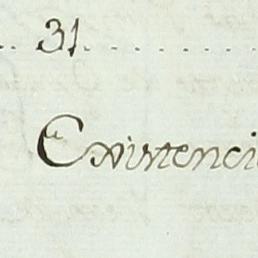 .. 31..........
Existenci